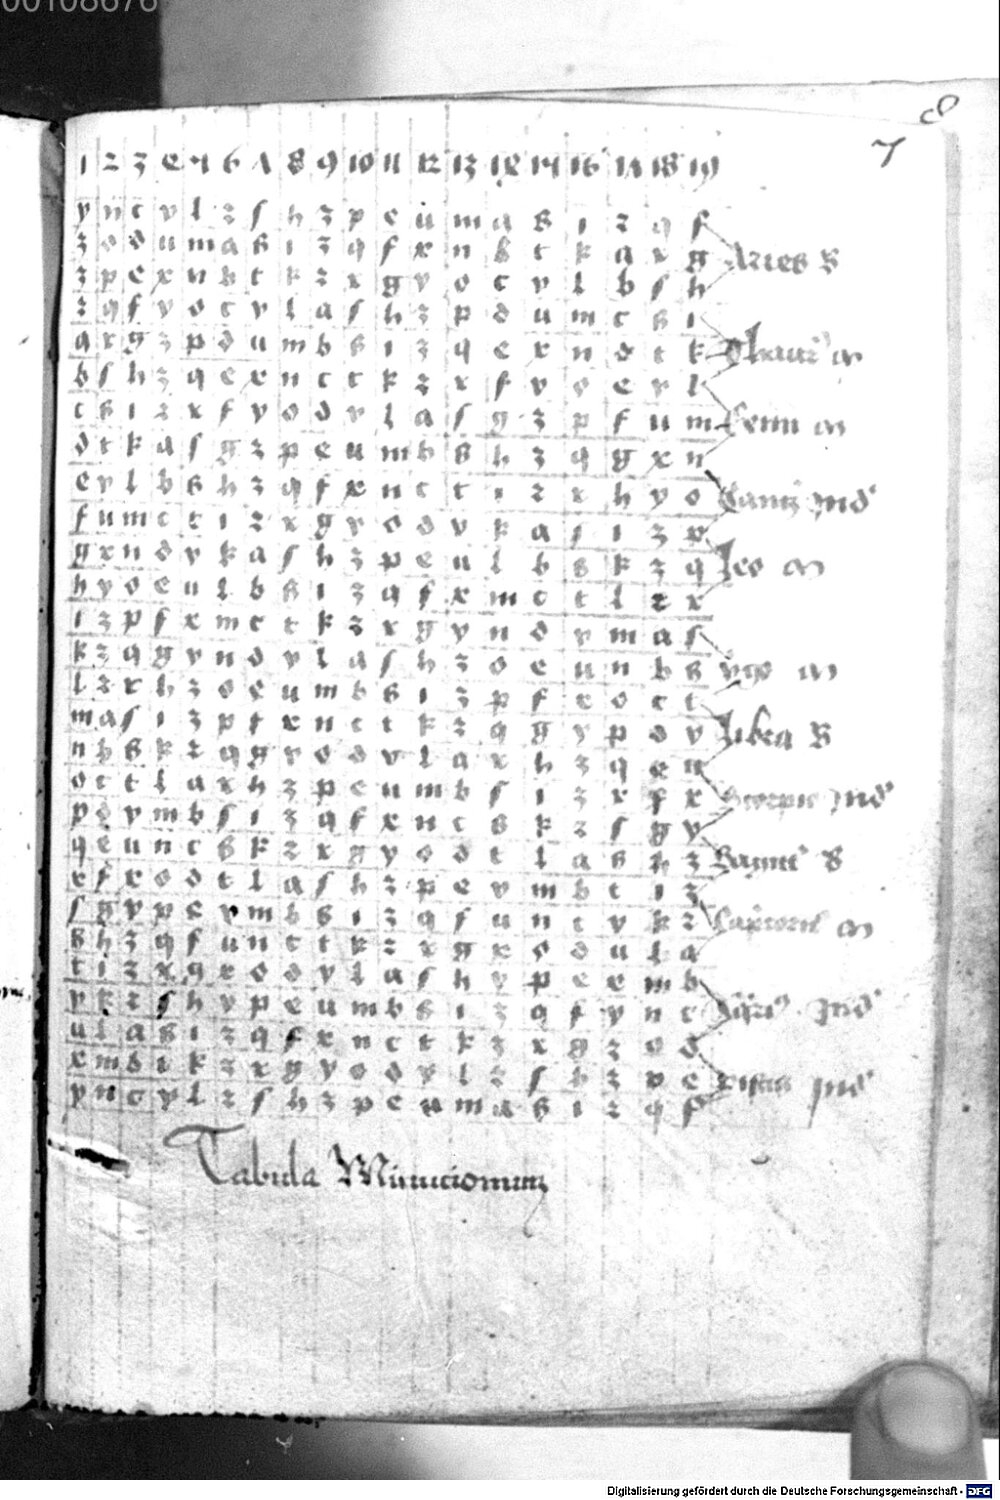 00108676
8
7
1 2 3 4 5 6 7 8 9 10 11 12 13 14 15 16 17 18 19
y n c v l z ſ h z p e u m a s i z q f
z o d u m a s i z q f x n b t k a r g
Aries B
z p e x n b t k z r g y o c v l b ſ h
z q f y o c v l a ſ h z p d u m c s i
a r g z p d u m b s i z q e x n d t k
b ſ h z q e x n c t k z r f y o e v l
c s i z r f y o d v l a ſ g z p f u m
d t k a ſ g z p e u m b s h z q g x n
e v l b s h z q f x n c t i z r h y o
f u m c t i z r g y o d v k a ſ i z p
g x n d v k a ſ h z p e u l b s k z q
Leo m
h y o e u l b s i z q f x m c t l z r
i z p f x m c t k z r g y n d v m a ſ
k z q g y n d v l a ſ h z o e u n b s
l z r h z o e u m b s i z p f x o c t
m a ſ i z p f x n c t k z q g y p d v
Libra B
n b s k z q g y o d v l a r h z q e u
o c t l a r h z p e u m b ſ i z r f x
p d v m b ſ i z q f x n c s k z ſ g y
q e u n c s k z r g y o d t l a s h z
r f x o d t l a ſ h z p e v m b t i z
ſ g y p e v m b s i z q f u n c v k z
s h z q f u n c t k z r g x o d u l a
t i z r g x o d v l a ſ h y p e x m b
v k z ſ h y p e u m b s i z q f y n c
u l a s i z q f x n c t k z r g z o d
x m b t k z r g y o d v l z ſ h z p e
y n c v l z ſ h z p e u m a s i z q f
Tabula Minucionum
Digitalisierung gefördert durch die Deutsche Forschungsgemeinschaft - DFG